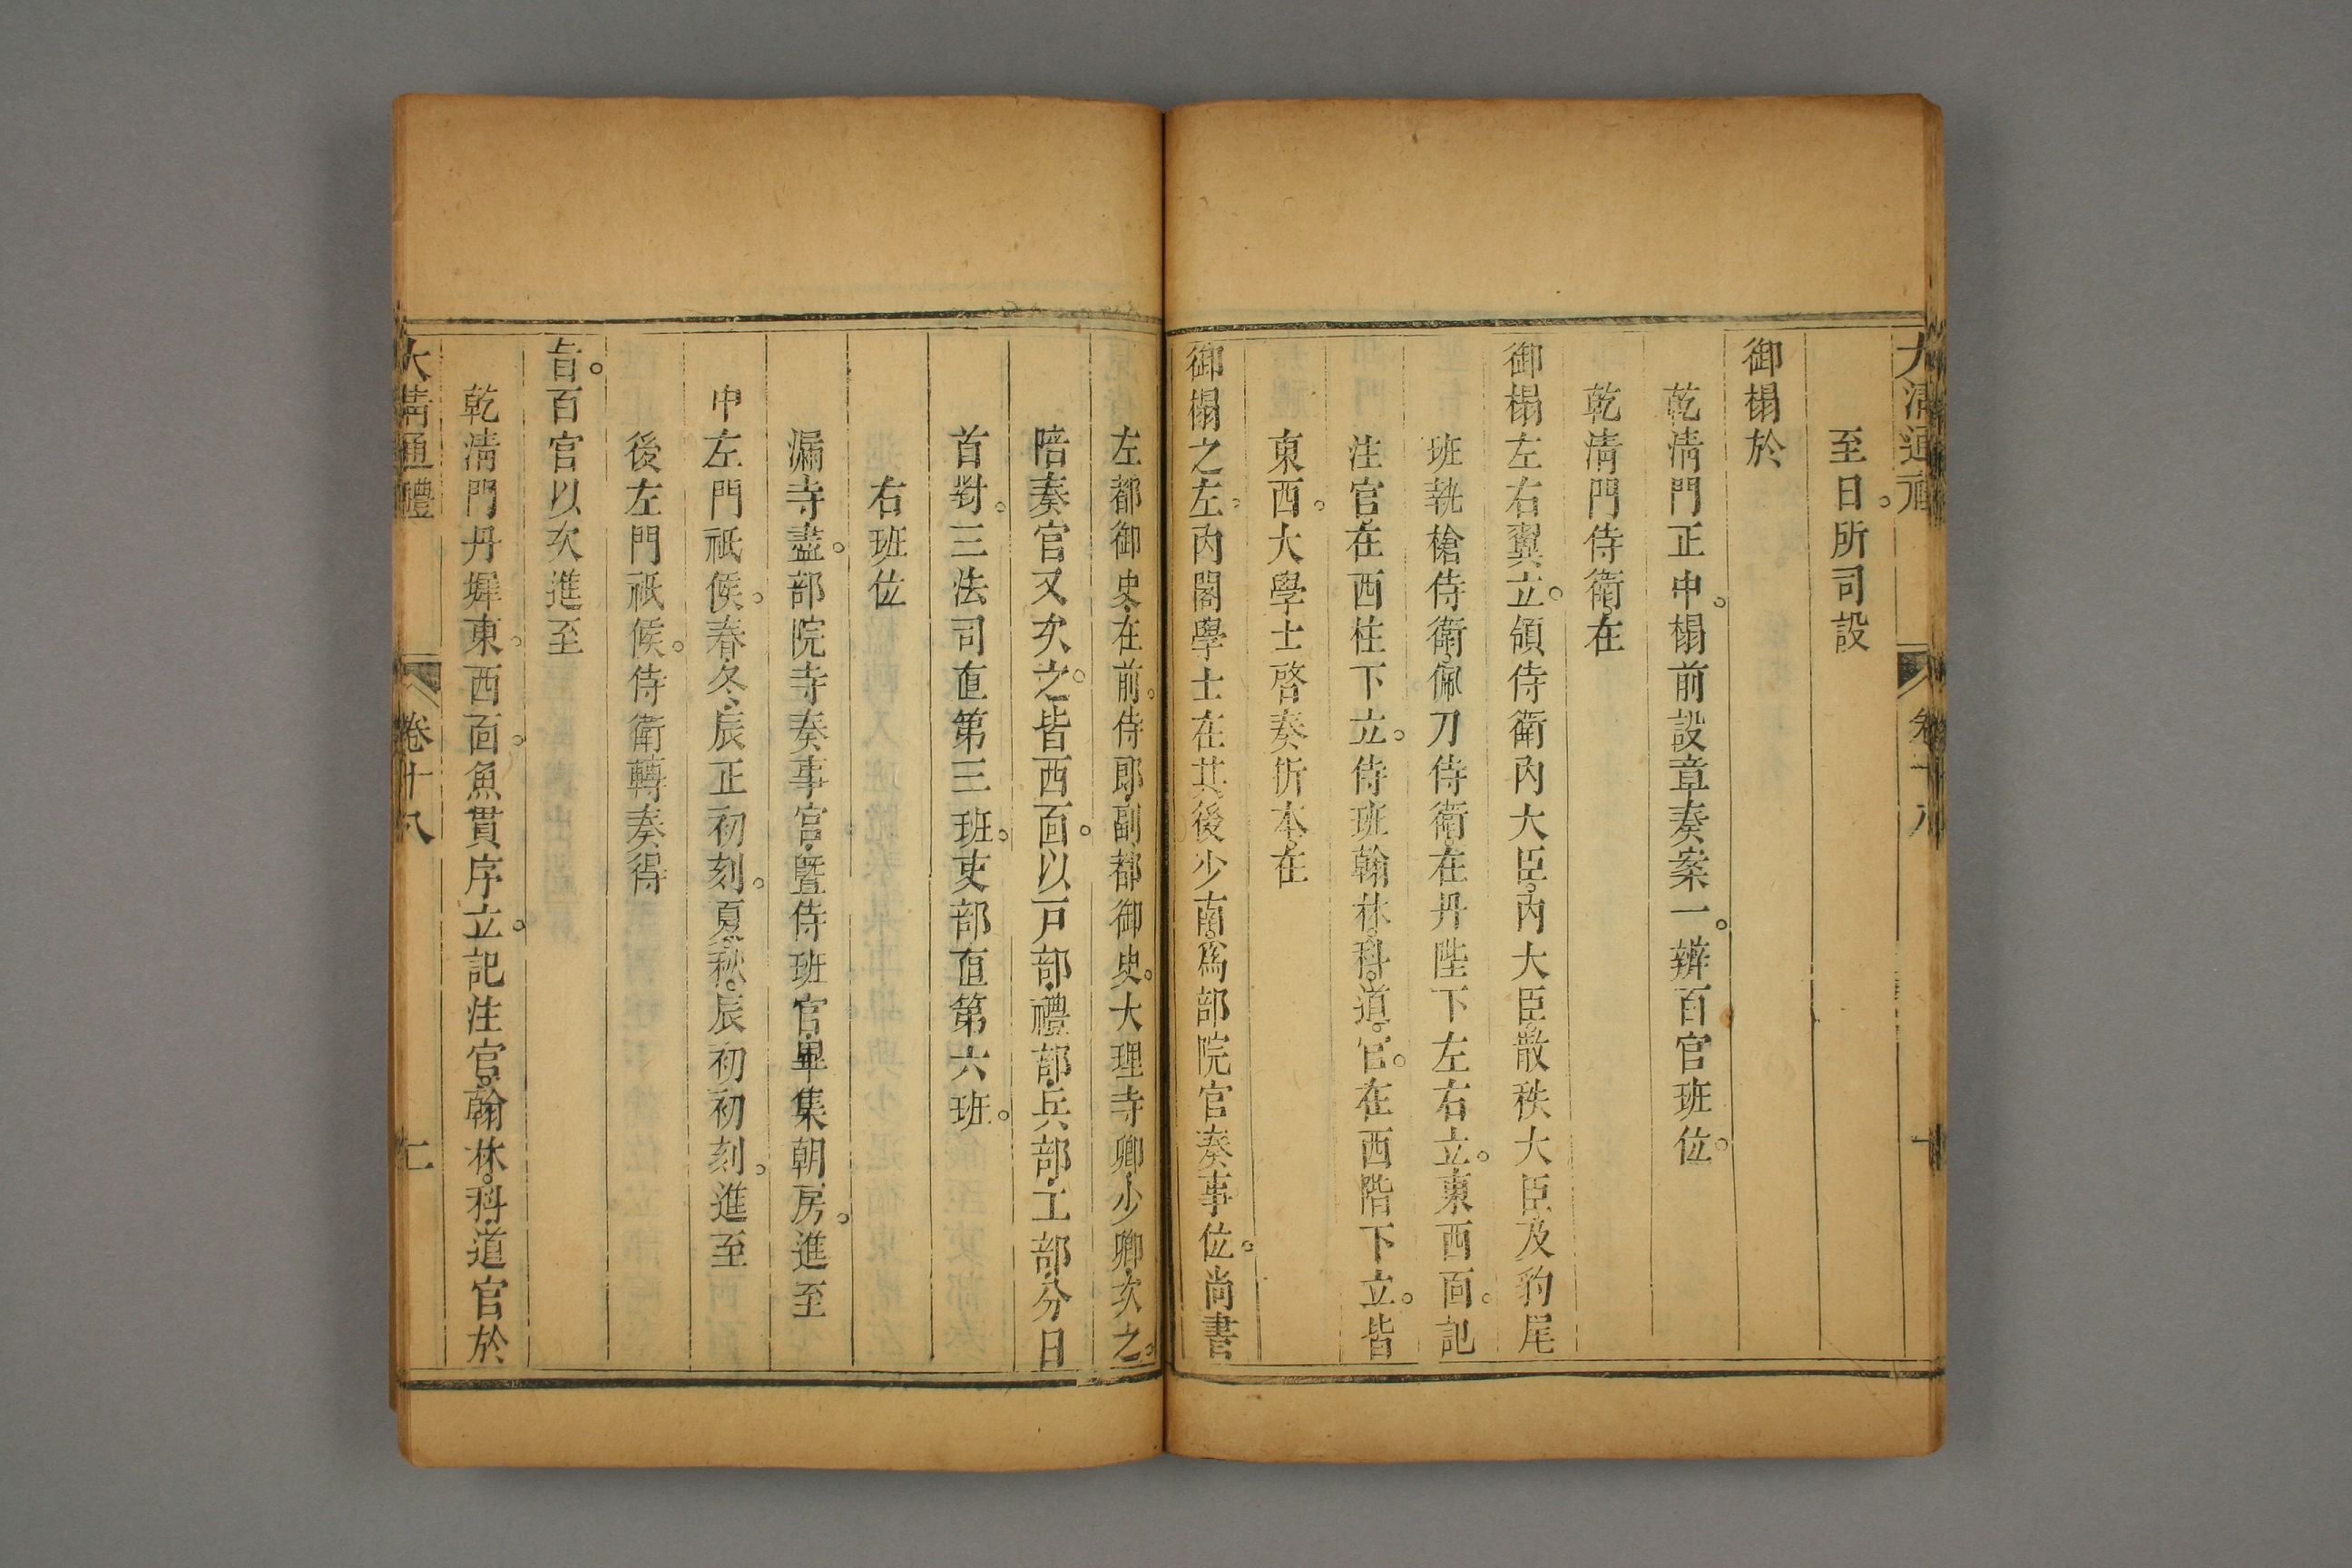 大清通禮 卷十八 十
至日。所司設
御榻於
乾淸門正中。榻前設章奏案一。辨百官班位。
乾淸門侍衛在
御榻左右翼立。領侍衛內大臣、內大臣、散秩大臣及豹尾
班執槍侍衛、佩刀侍衛。在丹陛下左右立。東西面。記
注官在西柱下立。侍班翰林、科、道、官。在西階下立。皆
東西。大學士啓奏折本、在
御榻之左。內閣學士在其後少南。爲部院官奏事位。尚書
左都御史在前。侍郎、副都御史。大理寺卿、少卿次之。
陪奏官又次之。皆西面。以戶部、禮部、兵部、工部、分日
首對。三法司直第三班。吏部直第六班。
右班位
漏寺盡。部院寺奏事官、曁侍班官、畢集朝房。進至
中左門祇候。春冬、辰正初刻。夏秋、辰初初刻。進至
後左門祇候。侍衛轉奏得
旨。百官以次進至
乾淸門丹墀東。西面。魚貫序立。記注官、翰林、科道官於
大淸通禮 卷十八